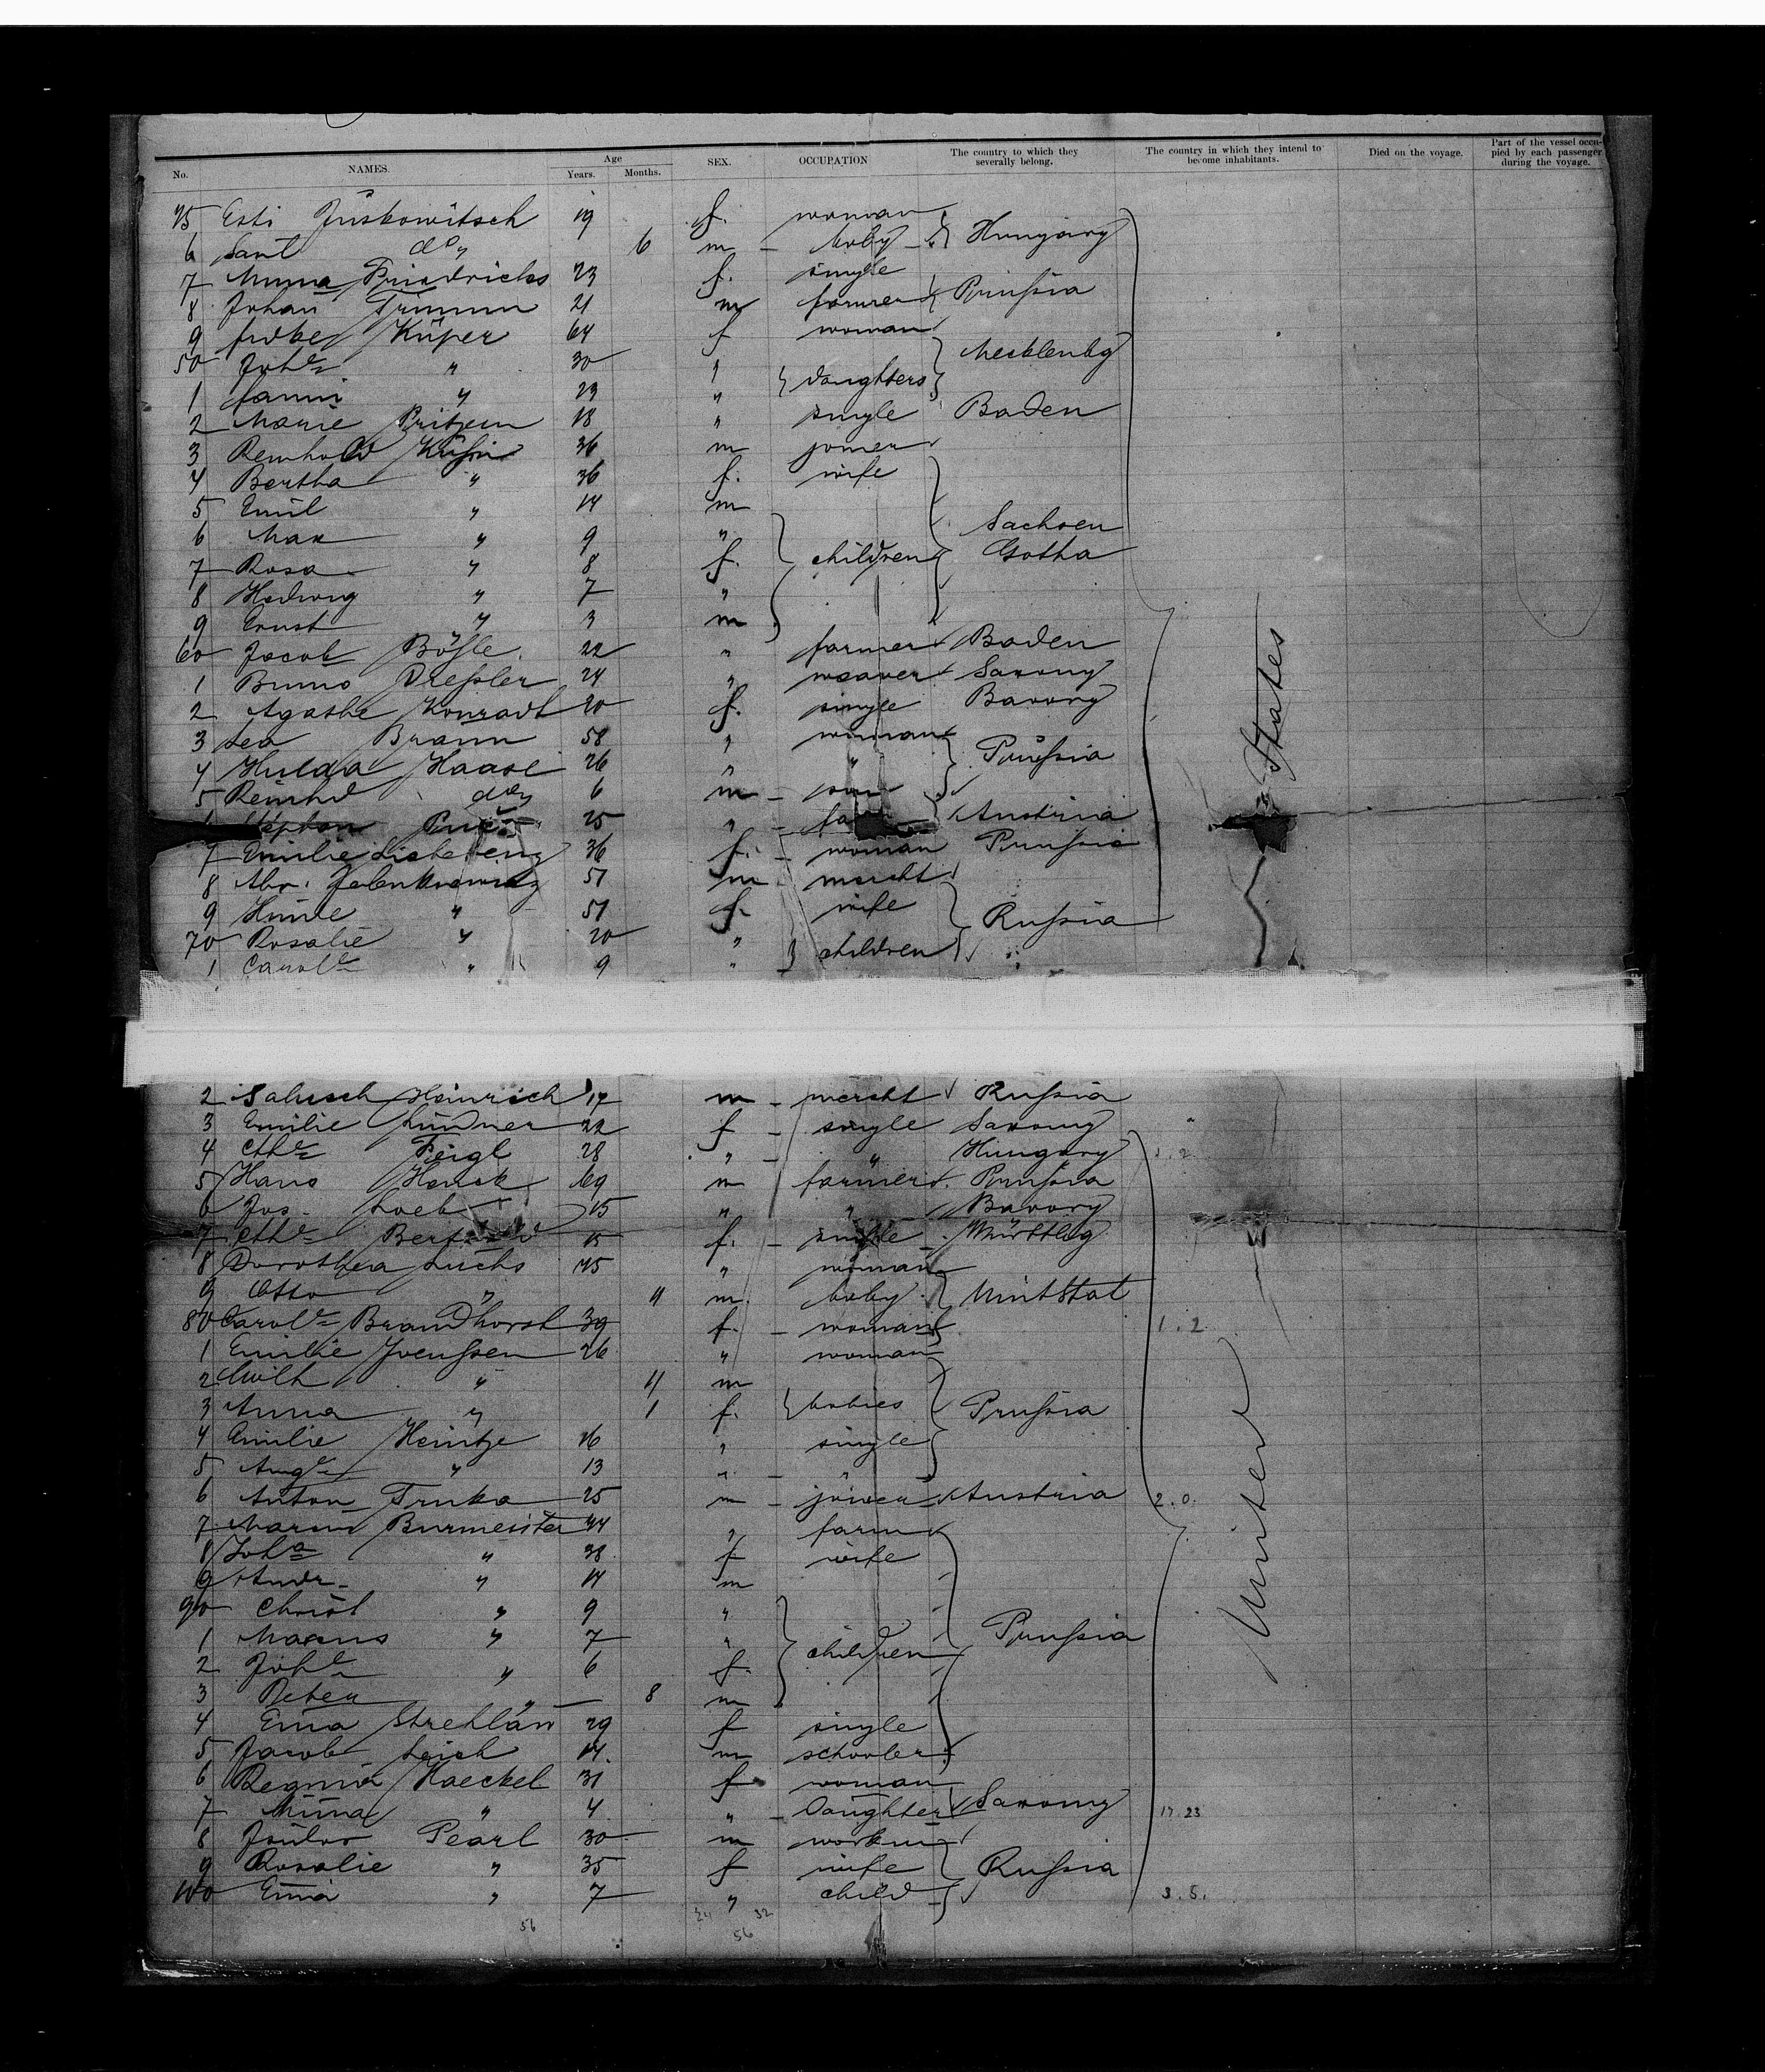 No. NAMES. Age Years. Months. SEX. OCCUPATION The country to which they severally belong. The country in which they intend to become inhabitants. Died on the voyage. Part of the vessel occupied by each passenger during the voyage.
45 Esti Juskowitsch 19 f. woman
6 do 6 m baby Hungary
7 Friedrichs 23 f. single
8 Johan Trumm 21 m farmer Prußia
9 Küper 64 f woman
50 Johe " 30 " Mecklenbg
1 Fanni " 23 " daughters
2 Marie 18 " single Baden
3 Reinhold 36 m joiner
4 Bertha " 36 f. wife
5 Emil " 14 m
6 Max " 9 " Sachsen
7 Rosa " 8 f. children Gotha
8 Hedwig " 7 "
9 Ernst " 3 m
60 Jacob Bößle 22 " farmer Baden
1 Bruno Dreßler 24 " weaver Saxony
2 Agathe Konradt 20 f. single Bavory
3 Lea Braun 58 " woman
4 Hulda Haase 26 " " Prußia
5 Reinhd do 6 m son
Stephan 25 " Austria
7 Emilie 36 f. woman Prußia
8 Abr. 51 m mercht
9 Hinde " 51 f. wife Rußia
70 Rosalie " 20 " children
1 Carole " 9 "
2 Salusch Heinrich 17 m mercht Rußia
3 Emilie Lindner 22 f single Saxony
4 Cthe Feigl 28 " " Hungary
5 Hans 69 m farmer Prußia
6 Jos. Loeb 15 " " Bavory
7 Cthe 15 f. single Württbg
8 Dorothea Luchs 45 " woman
9 Otto " 11 m. baby UnitStat
80 Carole Brandhorst 39 f. woman 1.2
1 Emilie Jvenßen 26 " woman
2 Wilh " 11 m
3 Anna " 1 f. babies Prußia
4 Emilie Heintze 16 " single
5 Auge " 13 " "
6 Anton Truka 25 m joiner Austria 2.0.
7 Burmeister 44 " farm
8 Joha " 38 f wife
9 Andr. " 14 m
90 Christ " 9 "
1 Magnus " 7 " Prußia
2 Johe " 6 f. children
3 Peter " 8 m
4 Ema 29 f single
5 Jacob 14. m schooler
6 Regina Haeckel 31 f woman
7 Minna " 4 " Daughter Saxony 17 23
8 Pearl 30 m
9 Rosalie " 35 f wife Rußia
100 Ema " 7 " child 3.5.
56 24 32
56
United States